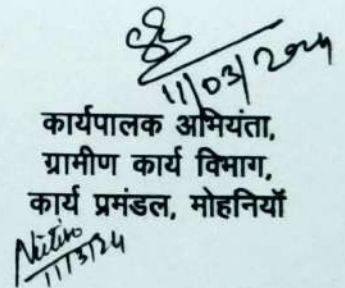 11/03/2024
कार्यपालक अभियंता,
ग्रामीण कार्य विभाग,
कार्य प्रमंडल, मोहनियाँ
11/3/24